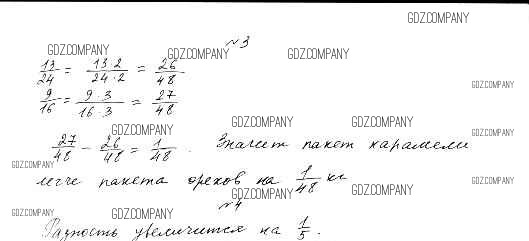 GDZ.COMPANY
№3
GDZ.COMPANY GDZ.COMPANY GDZ.COMPANY
13/24 = 13·2/24·2 = 26/48
GDZ.COMPANY
9/16 = 9·3/16·3 = 27/48
GDZ.COMPANY GDZ.COMPANY GDZ.COMPANY
GDZ.COMPANY
27/48 - 26/48 = 1/48. Значит пакет карамели
GDZ.COMPANY
легче пакета орехов на 1/48 кг
GDZ.COMPANY GDZ.COMPANY GDZ.COMPANY
№4
GDZ.COMPANY GDZ.COMPANY GDZ.COMPANY GDZ.COMPANY
Разность увеличится на 1/5.
GDZ.COMPANY